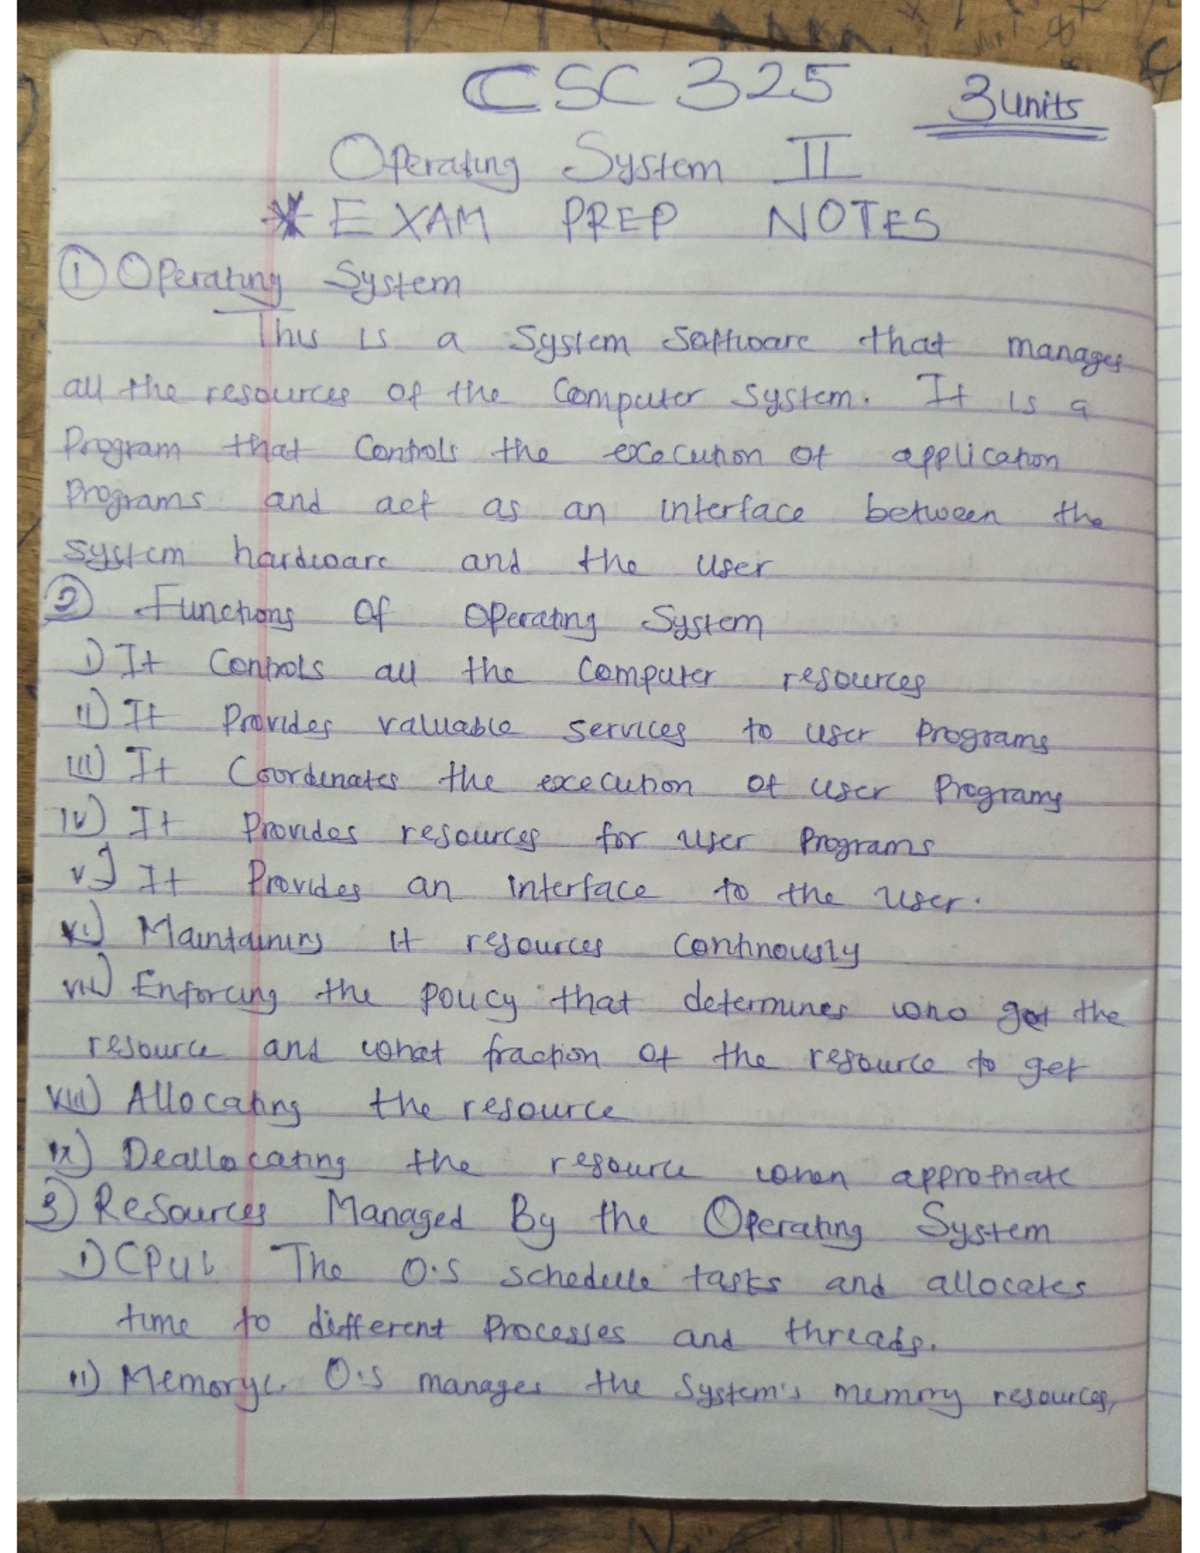 CSC 325 3 units
Operating System II
* EXAM PREP NOTES
① Operating System
This is a System Software that manages
all the resources of the Computer System. It is a
Program that Controls the execution of application
Programs and act as an interface between the
system hardware and the user
② Functions Of Operating System
i) It Controls all the Computer resources
ii) It Provides valuable services to user Programs
iii) It Coordinates the execution of user Programs
iv) It Provides resources for user Programs
v) It Provides an interface to the user.
vi) Maintaining it resources continously
vii) Enforcing the policy that determines who get the
resource and what fraction of the resource to get
viii) Allocating the resource
ix) Deallocating the resource when appropriate
③ Resources Managed By the Operating System
i) CPU: The O.S schedule tasks and allocates
time to different Processes and threads.
ii) Memory: O.S manages the System's memory resources,